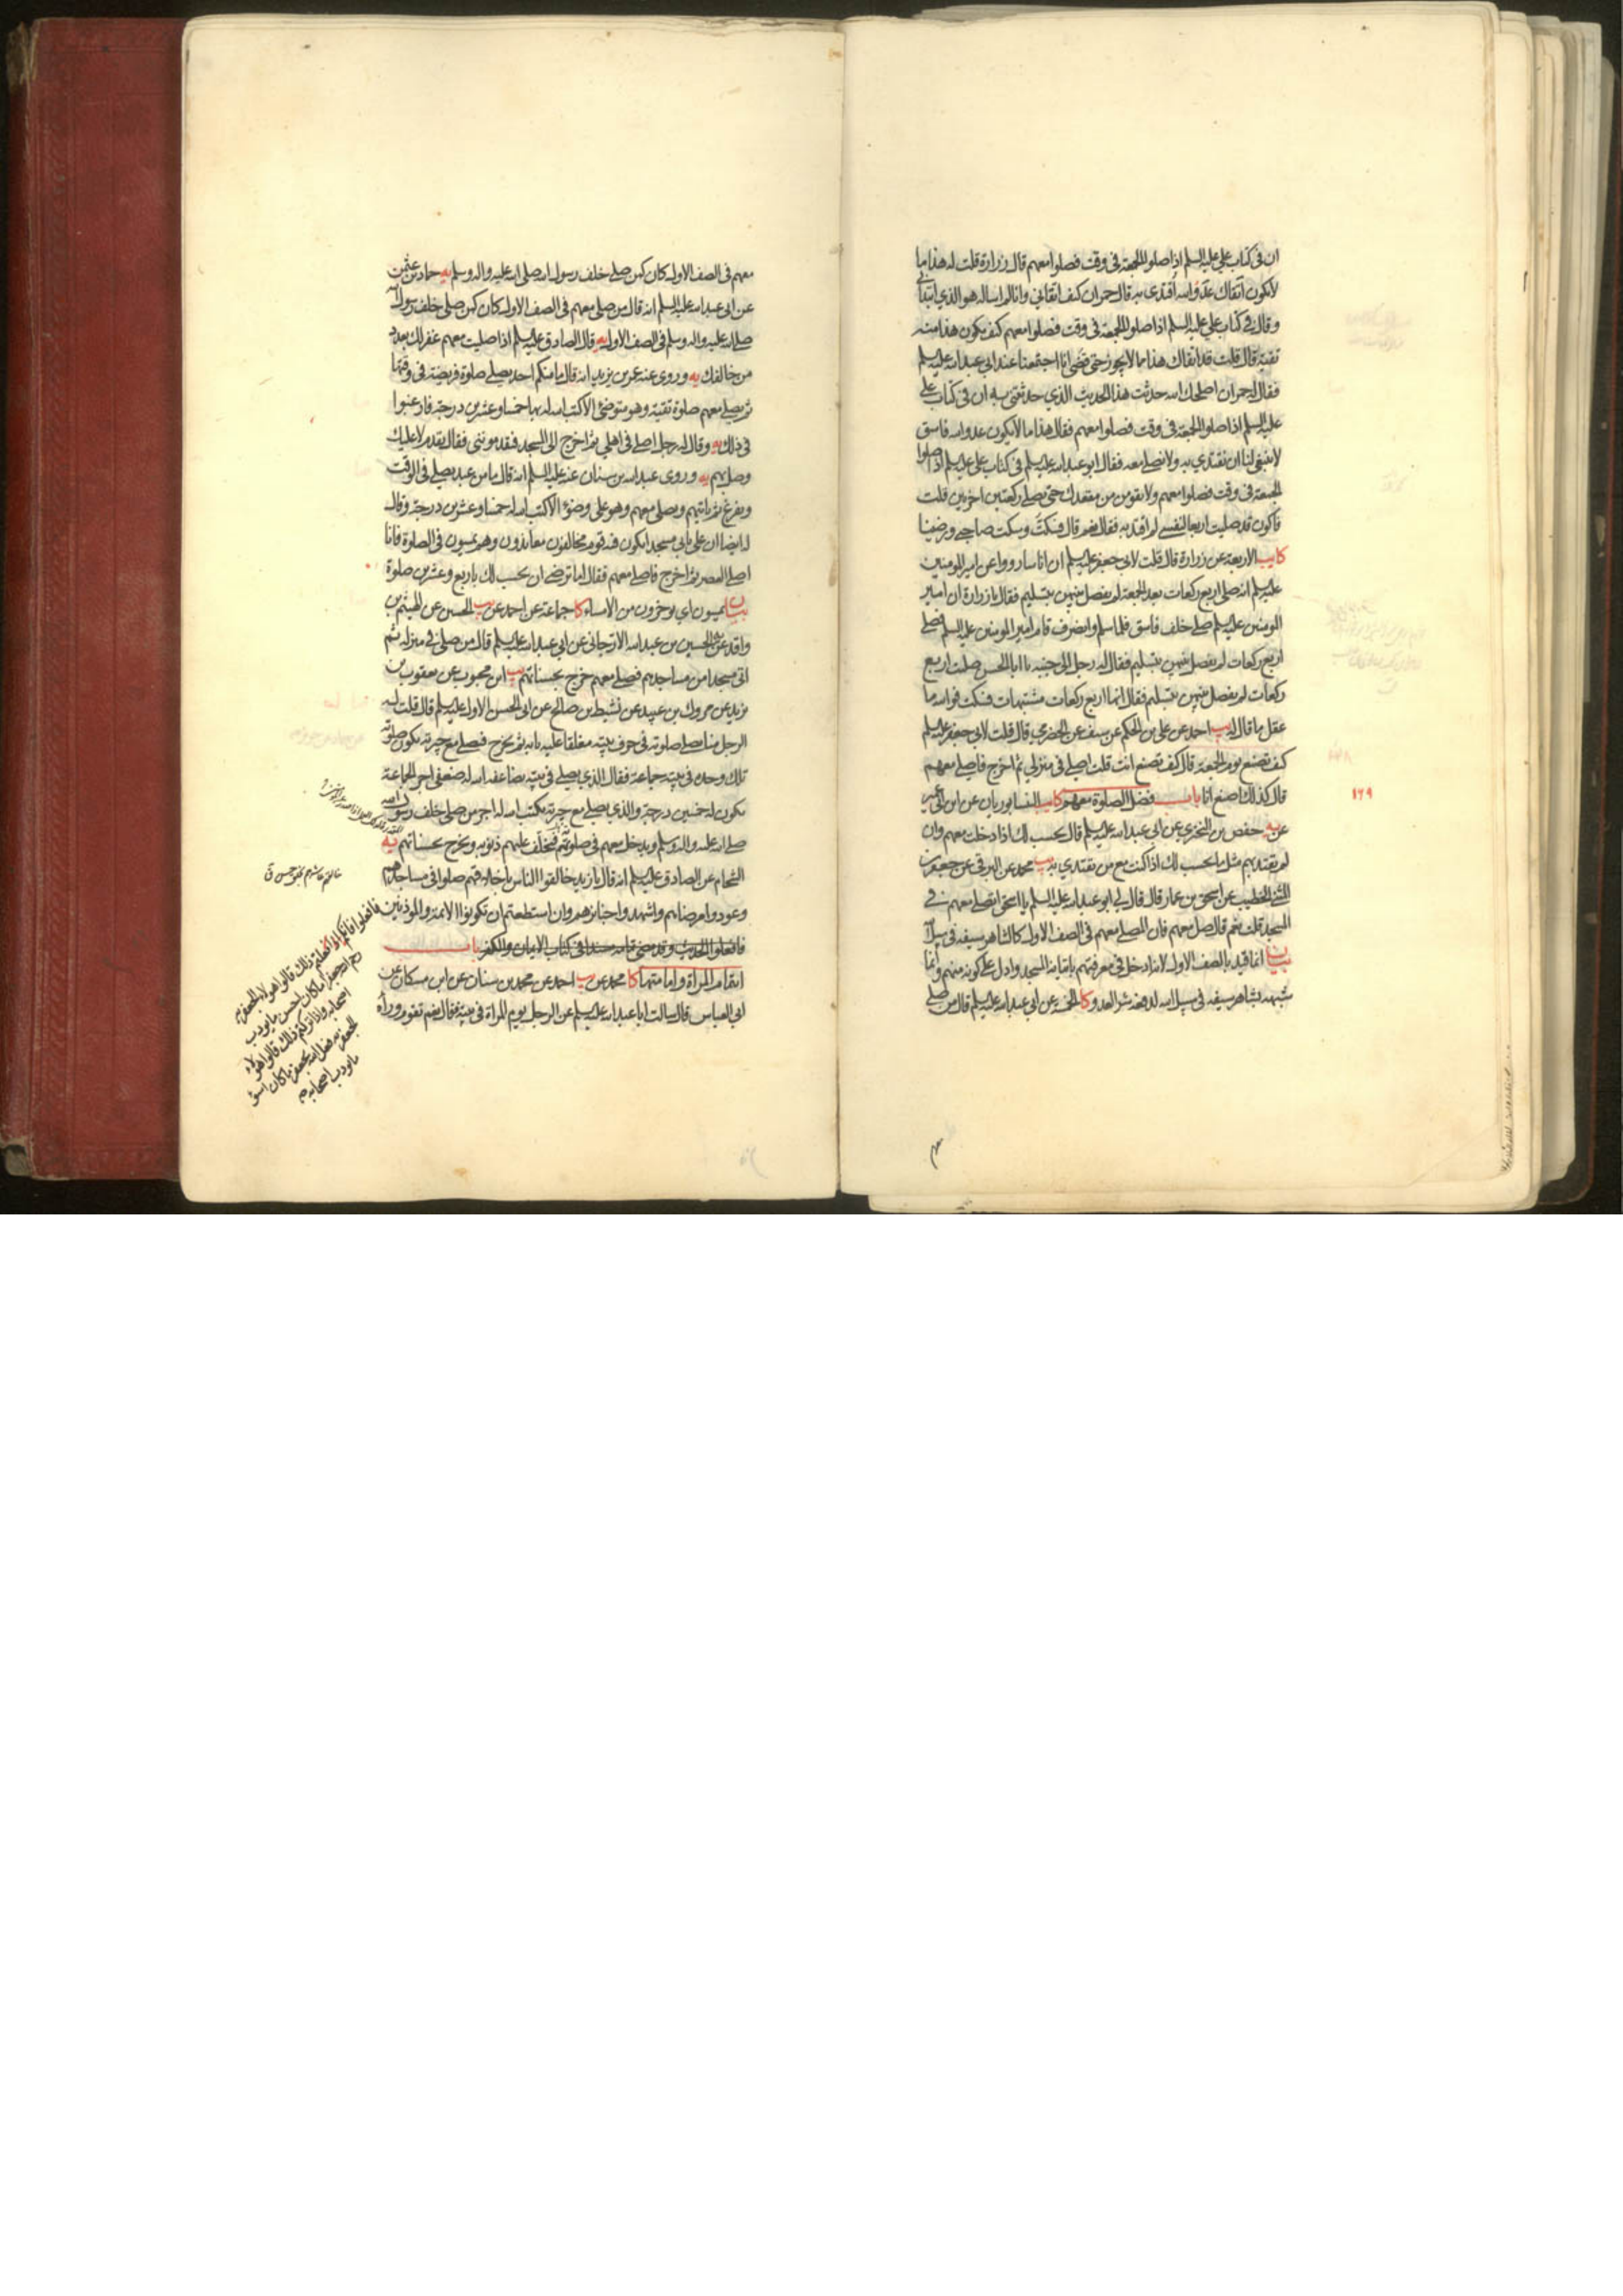 ان في كتاب علي عليه السلم اذا صلوا الجمعة في وقت فصلوا معهم قال زرارة قلت له هذا ما
لا يكون اتقاك عدو الله اقتدي به قال حمران كيف اتقاني وانا لم اساله هو الذي ابتدأني
وقال في كتاب علي عليه السلم اذا صلوا الجمعة في وقت فصلوا معهم كيف يكون هذا منه
تقية قال قلت قد اتقاك هذا مما لا يجوز حتى قضي انا اجتمعنا عند ابي عبد الله عليه السلم
فقال له حمران اصلحك الله حدثت هذا الحديث الذي حدثتني به ان في كتاب علي
عليه السلم اذا صلوا الجمعة في وقت فصلوا معهم فقال هذا ما لا يكون عدو الله فاسق
لا ينبغي لنا ان نقتدي به ولا نصلي معه فقال ابو عبد الله عليه السلم في كتاب علي عليه السلم اذا صلوا
الجمعة في وقت فصلوا معهم ولا تقومن من مقعدك حتى تصلي ركعتين اخريين قلت
فاكون قد صليت اربعا لنفسي لم اقتد به فقال نعم قال فسكت وسكت صاحبي ورضينا
كا يب الاربعة عن زرارة قال قلت لابي جعفر عليه السلم ان اناسا رووا عن امير المؤمنين
عليه السلم انه صلى اربع ركعات بعد الجمعة لم يفصل بينهن بتسليم فقال يا زرارة ان امير
المومنين عليه السلم صلى خلف فاسق فلما سلم وانصرف قام امير المومنين عليه السلم فصلى
اربع ركعات لم يفصل بينهن بتسليم فقال له رجل الى جنبه يا ابا الحسن صليت اربع
ركعات لم يفصل بينهن بتسليم فقال انها اربع ركعات مشتبهات فسكت فوالله ما
عقل ما قال له يب احمد عن علي بن الحكم عن سيف عن الحضرمي قال قلت لابي جعفر عليه السلم
كيف تصنع يوم الجمعة قال كيف تصنع انت قلت اصلي في منزلي ثم اخرج فاصلي معهم
قال كذلك اصنع انا باب فضل الصلوة معهم كا يب النيسابوريان عن ابن ابي عمير
١٢٩
عن يه حفص بن البختري عن ابي عبد الله عليه السلم قال يحسب لك اذا دخلت معهم وان
لم تقتد بهم مثل ما يحسب لك اذا كنت مع من تقتدي به يب محمد عن البرقي عن جعفر بن
المثنى الخطيب عن اسحق بن عمار قال قال لي ابو عبد الله عليه السلم يا اسحق اتصلي معهم في
المسجد قلت نعم قال صل معهم فان المصلي معهم في الصف الاول كالشاهر سيفه في سبيل الله
بيان انما قيد بالصف الاول لانه ادخل في معرفتهم باتيانه المسجد وادل على كونه منهم وانما
شبهه بشاهر سيفه في سبيل الله لدفعه شر العدو كا الخمسة عن ابي عبد الله عليه السلم قال من صلى
معهم
معهم في الصف الاول كان كمن صلى خلف رسول الله صلى الله عليه واله وسلم يه حماد بن عثمن
عن ابي عبد الله عليه السلم انه قال من صلى معهم في الصف الاول كان كمن صلى خلف رسول الله
صلى الله عليه واله وسلم في الصف الاول يه قال الصادق عليه السلم اذا صليت معهم غفر لك بعدد
من خالفك يه وروى عنه عمر بن يزيد انه قال ما منكم احد يصلي صلوة فريضة في وقتها
ثم يصلي معهم صلوة تقية وهو متوضئ الا كتب الله له بها خمسا وعشرين درجة فارغبوا
في ذلك يه وقال له رجل اصلي في اهلي ثم اخرج الى المسجد فيقدموني فقال تقدم لا عليك
وصل بهم يه وروى عبد الله بن سنان عنه عليه السلم انه قال ما من عبد يصلي في الوقت
ويفرغ ثم ياتيهم ويصلي معهم وهو على وضوء الا كتب الله له خمسا وعشرين درجة وقال
له ايضا ان على بابي مسجدا يكون فيه قوم مخالفون معاندون وهم يمسون في الصلوة فانا
اصلي العصر ثم اخرج فاصلي معهم فقال اما ترضى ان يحسب لك باربع وعشرين صلوة
بيان يمسون اي يوخرون من الامساء كا جماعة عن احمد عن يب الحسين عن الهيثم بن
واقد عن الحسين بن عبد الله الارجاني عن ابي عبد الله عليه السلم قال من صلى في منزله ثم
اتى مسجدا من مساجدهم فصلى معهم خرج بحسناتهم يب ابن محبوب عن يعقوب بن
يزيد عن مروك بن عبيد عن نشيط بن صالح عن ابي الحسن الاول عليه السلم قال قلت له
الرجل منا يصلي صلوته في جوف بيته مغلقا عليه بابه ثم يخرج فيصلي مع جيرته تكون صلوته
تلك وحده في بيته جماعة فقال الذي يصلي في بيته يضاعفه الله له ضعفي اجر الجماعة
تكون له خمسين درجة والذي يصلي مع جيرته يكتب الله له اجر من صلى خلف رسول الله
صلى الله عليه واله وسلم ويدخل معهم في صلوتهم فيخلف عليهم ذنوبه ويخرج بحسناتهم يه
الشحام عن الصادق عليه السلم انه قال يا زيد خالقوا الناس باخلاقهم صلوا في مساجدهم
وعودوا مرضاهم واشهدوا جنائزهم وان استطعتم ان تكونوا الائمة والموذنين
فافعلوا الحديث وقد مضى تمامه مسندا في كتاب الايمان والكفر باب
ائتمام المراة وامامتها كا محمد عن يب احمد عن محمد بن سنان عن ابن مسكان عن
ابي العباس قال سالت ابا عبد الله عليه السلم عن الرجل يوم المراة في بيته فقال نعم تقوم وراه
فافعلوا فانكم اذا فعلتم ذلك قالوا هولاء الجعفرية
رحم الله جعفرا ما كان احسن ما يودب
اصحابه واذا تركتم ذلك قالوا هولاء
الجعفرية فعل الله بجعفر ما كان اسوء
ما يودب اصحابه